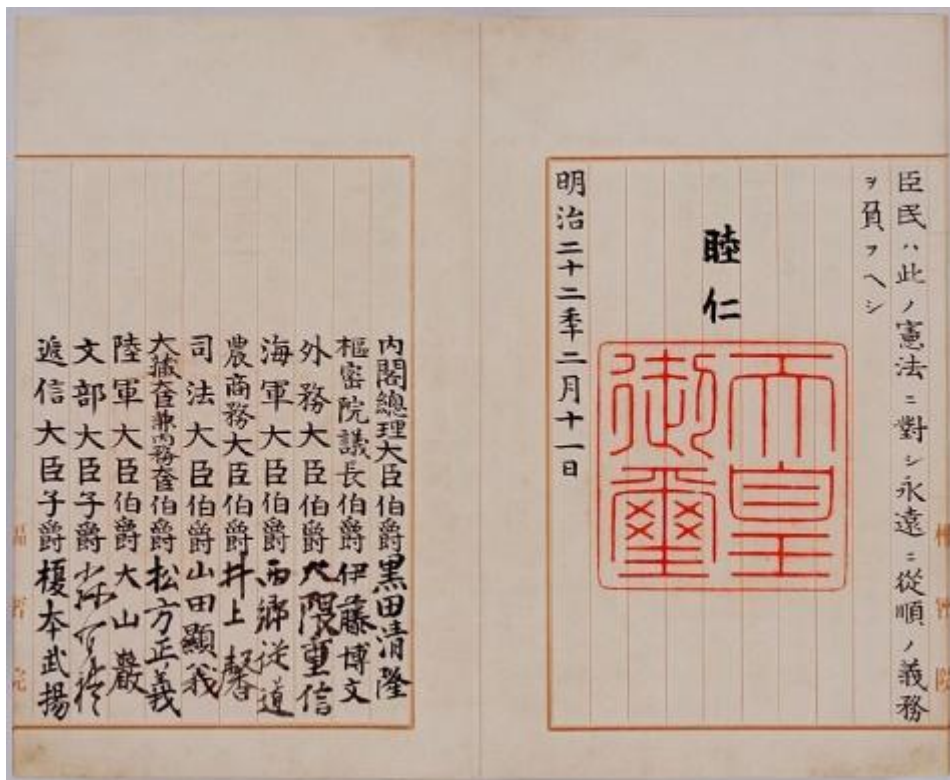 臣民ハ此ノ憲法ニ對シ永遠ニ從順ノ義務
ヲ負フヘシ
睦仁
天皇
御璽
明治二十二年二月十一日
樞密院
內閣總理大臣伯爵黑田清隆
樞密院議長伯爵伊藤博文
外務大臣伯爵大隈重信
海軍大臣伯爵西鄉從道
農商務大臣伯爵井上馨
司法大臣伯爵山田顯義
大藏大臣兼內務大臣伯爵松方正義
陸軍大臣伯爵大山巖
文部大臣子爵
遞信大臣子爵榎本武揚